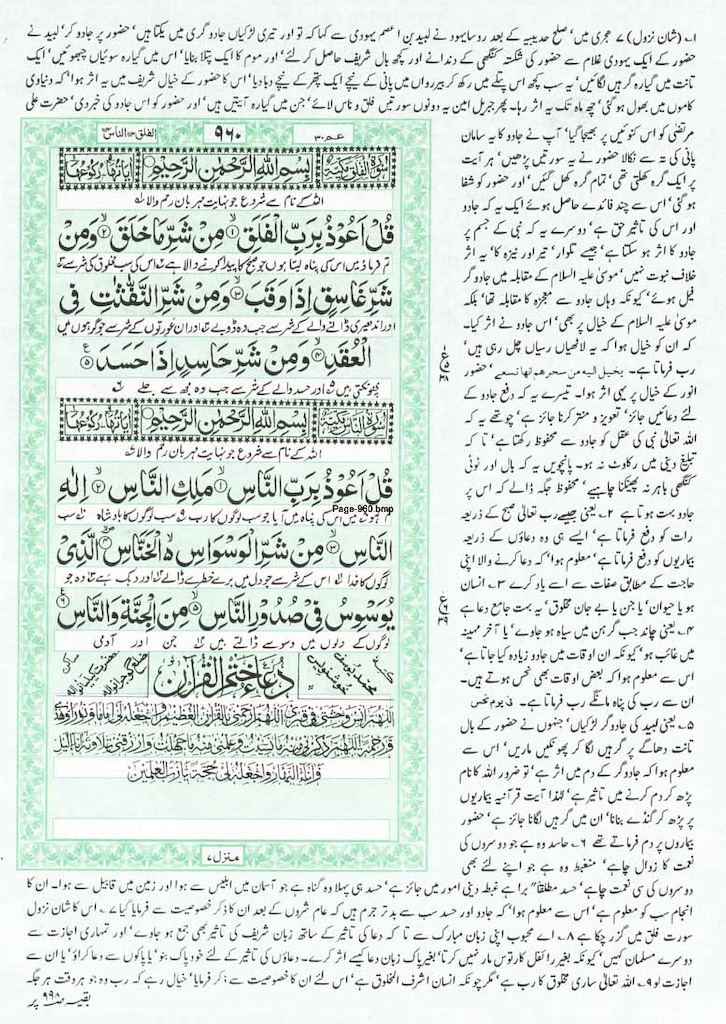 ۱۔ (شان نزول) ۷ ہجری میں' صلح حدیبیہ کے بعد روسا یہود نے لبید بن اعصم یہودی سے کہا کہ تو اور تیری لڑکیاں جادو گری میں یکتا ہیں' حضور پر جادو کر' لبید نے
حضور کے ایک یہودی غلام سے حضور کی شکستہ کنگھی کے دندانے اور کچھ بال شریف حاصل کر لئے' اور موم کا ایک پتلا بنایا' اس میں گیارہ سوئیاں چبھوئیں' ایک
تانت میں گیارہ گرہیں لگائیں' یہ سب کچھ اس پتلے میں رکھ کر بیر رواں میں پانی کے نیچے ایک پتھر کے نیچے دبا دیا' اس کا حضور کے خیال شریف میں یہ اثر ہوا' کہ دنیاوی
کاموں میں بھول ہو گئی' چھ ماہ تک یہ اثر رہا۔ پھر جبریل امین یہ دونوں سورتیں فلق و ناس لائے' جن میں گیارہ آیتیں ہیں' اور حضور کو اس جادو کی خبر دی' حضرت علی
عمّ ۳۰
۹۶۰
الفلق الناس
سورة الفلق مكية
بسم الله الرحمن الرحيم
اللہ کے نام سے شروع جو نہایت مہربان رحم والا
قُلْ اَعُوْذُ بِرَبِّ الْفَلَقِ ۱ مِنْ شَرِّ مَا خَلَقَ ۲ وَمِنْ
تم فرماؤ میں اس کی پناہ لیتا ہوں جو صبح کا پیدا کرنے والا ہے اس کی سب مخلوق کی شر سے
شَرِّ غَاسِقٍ اِذَا وَقَبَ ۳ وَمِنْ شَرِّ النَّفّٰثٰتِ فِی
اور اندھیری ڈالنے والے کے شر سے جب وہ ڈوبے اور ان عورتوں کے شر سے جو گرہوں میں
الْعُقَدِ ۴ وَمِنْ شَرِّ حَاسِدٍ اِذَا حَسَدَ ۵
پھونکتی ہیں اور حسد والے کے شر سے جب وہ مجھ سے جلے
سورة الناس مكية
بسم الله الرحمن الرحيم
اللہ کے نام سے شروع جو نہایت مہربان رحم والا
قُلْ اَعُوْذُ بِرَبِّ النَّاسِ ۱ مَلِكِ النَّاسِ ۲ اِلٰهِ
Page-960.bmp
میں اس کی پناہ میں آیا جو سب لوگوں کا رب سب لوگوں کا بادشاہ سب
النَّاسِ ۳ مِنْ شَرِّ الْوَسْوَاسِ الْخَنَّاسِ ۴ الَّذِیْ
لوگوں کا خدا اس کے شر سے جو دل میں برے خطرے ڈالے اور دبک رہے وہ جو
یُوَسْوِسُ فِیْ صُدُوْرِ النَّاسِ ۵ مِنَ الْجِنَّةِ وَالنَّاسِ ۶
لوگوں کے دلوں میں وسوسے ڈالتے ہیں جن اور آدمی
دُعَاءُ خَتْمِ الْقُرْآن
اَللّٰهُمَّ اٰنِسْ وَحْشَتِیْ فِیْ قَبْرِیْ اَللّٰهُمَّ ارْحَمْنِیْ بِالْقُرْاٰنِ الْعَظِیْمِ وَاجْعَلْهُ لِیْ اِمَامًا وَّنُوْرًا وَّهُدًی
وَّرَحْمَةً اَللّٰهُمَّ ذَكِّرْنِیْ مِنْهُ مَا نَسِیْتُ وَعَلِّمْنِیْ مِنْهُ مَا جَهِلْتُ وَارْزُقْنِیْ تِلَاوَتَهٗ اٰنَآءَ الَّیْلِ
وَاٰنَآءَ النَّهَارِ وَاجْعَلْهُ لِیْ حُجَّةً یَّا رَبَّ الْعٰلَمِیْنَ
منزل ۷
مرتضیٰ کو اس کنوئیں پر بھیجا گیا' آپ نے جادو کا یہ سامان
پانی کی تہ سے نکالا حضور نے یہ سورتیں پڑھیں' ہر آیت
پر ایک گرہ کھلتی تھی' تمام گرہ کھل گئیں' اور حضور کو شفا
ہو گئی' اس سے چند فائدے حاصل ہوئے ایک یہ کہ جادو
اور اس کی تاثیر حق ہے' دوسرے یہ کہ نبی کے جسم پر
جادو کا اثر ہو سکتا ہے' جیسے تلوار' تیر اور نیزہ کا' یہ اثر
خلاف نبوت نہیں' موسیٰ علیہ السلام کے مقابلہ میں جادو گر
فیل ہوئے' کیونکہ وہاں جادو سے معجزہ کا مقابلہ تھا' بلکہ
موسیٰ علیہ السلام کے خیال پر بھی' اس جادو نے اثر کیا۔
کہ ان کو خیال ہوا کہ یہ لاٹھیاں رسیاں چل رہی ہیں'
رب فرماتا ہے۔ یخیل الیه من سحرهم انها تسعی' حضور
انور کے خیال پر یہی اثر ہوا۔ تیسرے یہ کہ دفع جادو کے
لئے دعائیں جائز' تعویذ و منتر کرنا جائز ہے' چوتھے یہ کہ
اللہ تعالیٰ نبی کی عقل کو جادو سے محفوظ رکھتا ہے' تا کہ
تبلیغ دینی میں رکاوٹ نہ ہو۔ پانچویں یہ کہ بال اور ٹوٹی
کنگھی باہر نہ پھینکنا چاہیے' محفوظ جگہ ڈالے کہ اس پر
جادو بہت ہوتا ہے ۲۔ یعنی جیسے رب تعالیٰ صبح کے ذریعہ
رات کو دفع فرماتا ہے' ایسے ہی وہ دعاؤں کے ذریعہ
بیماریوں کو دفع فرماتا ہے' معلوم ہوا' کہ دعا کرنے والا اپنی
حاجت کے مطابق صفات سے اسے یاد کرے ۳۔ انسان
ہو یا حیوان' یا جن یا بے جان مخلوق' یہ بہت جامع دعا ہے
۴۔ یعنی چاند جب گرہن میں سیاہ ہو جاوے' یا آخر مہینہ
میں غائب ہو' کیونکہ ان اوقات میں جادو زیادہ کیا جاتا ہے'
اس سے معلوم ہوا' کہ بعض اوقات بھی نحس ہوتے ہیں۔
ان سے رب کی پناہ مانگے رب فرماتا ہے۔ فی یوم نحس
۵۔ یعنی لبید کی جادو گر لڑکیاں' جنہوں نے حضور کے بال
تانت دھاگے پر گرہیں لگا کر پھونکیں ماریں' اس سے
معلوم ہوا کہ جادو گر کے دم میں اثر ہے' تو ضرور اللہ کا نام
پڑھ کر دم کرنے میں تاثیر ہے' لہٰذا آیت قرآنیہ بیماریوں
پر پڑھ کر گنڈے بنانا' ان میں گرہیں لگانا جائز ہے' حضور
بیماروں پر دم فرماتے تھے ۶۔ حاسد وہ ہے جو دوسروں کی
نعمت کا زوال چاہے' منغبط وہ ہے جو اپنے لئے بھی
دوسروں کی سی نعمت چاہے' حسد مطلقاً" برا ہے غبطہ دینی امور میں جائز ہے' حسد ہی پہلا وہ گناہ ہے جو آسمان میں ابلیس سے ہوا اور زمین میں قابیل سے ہوا۔ ان کا
انجام سب کو معلوم ہے' اس سے معلوم ہوا' کہ جادو اور حسد سب سے بدتر جرم ہیں کہ عام شروں کے بعد ان کا ذکر خصوصیت سے فرمایا گیا ۷۔ اس کا شان نزول
سورت فلق میں گزر چکا ہے ۸۔ اے محبوب اپنی زبان مبارک سے تا کہ دعا کی تاثیر کے ساتھ زبان شریف کی تاثیر بھی جمع ہو جاوے' اور تمہاری اجازت سے
دوسرے مسلمان کہیں' کیونکہ بغیر رائفل کارتوس مار نہیں کرتا' بغیر پاک زبان دعا کیسے اثر کرے۔ دعاؤں کی تاثیر کے لئے خود پاک بنو' یا پاکوں سے دعا کراؤ' یا ان سے
اجازت لو ۹۔ اللہ تعالیٰ ساری مخلوق کا رب ہے' مگر چونکہ انسان اشرف المخلوق ہے' اس لئے ان کا خصوصیت سے ذکر فرمایا' خیال رہے کہ رب وہ جو ہر وقت ہر جگہ
بقیہ صفحہ ۹۹۸ پر